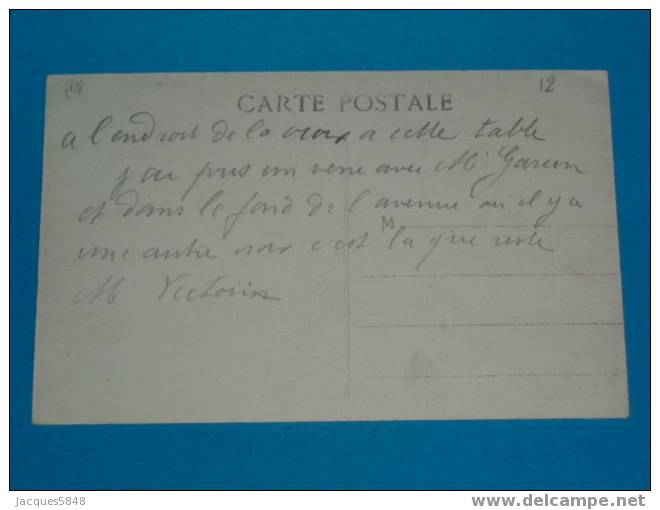 (18)
12
CARTE POSTALE
a l'endroit de la croix a cette table
j ai pris un verre avec Mr Garcin
et dans le fond de l'avenue ou il y a
M
une autre croix c est la que reste
Mr Victorin
Jacques5848
delcampe.net